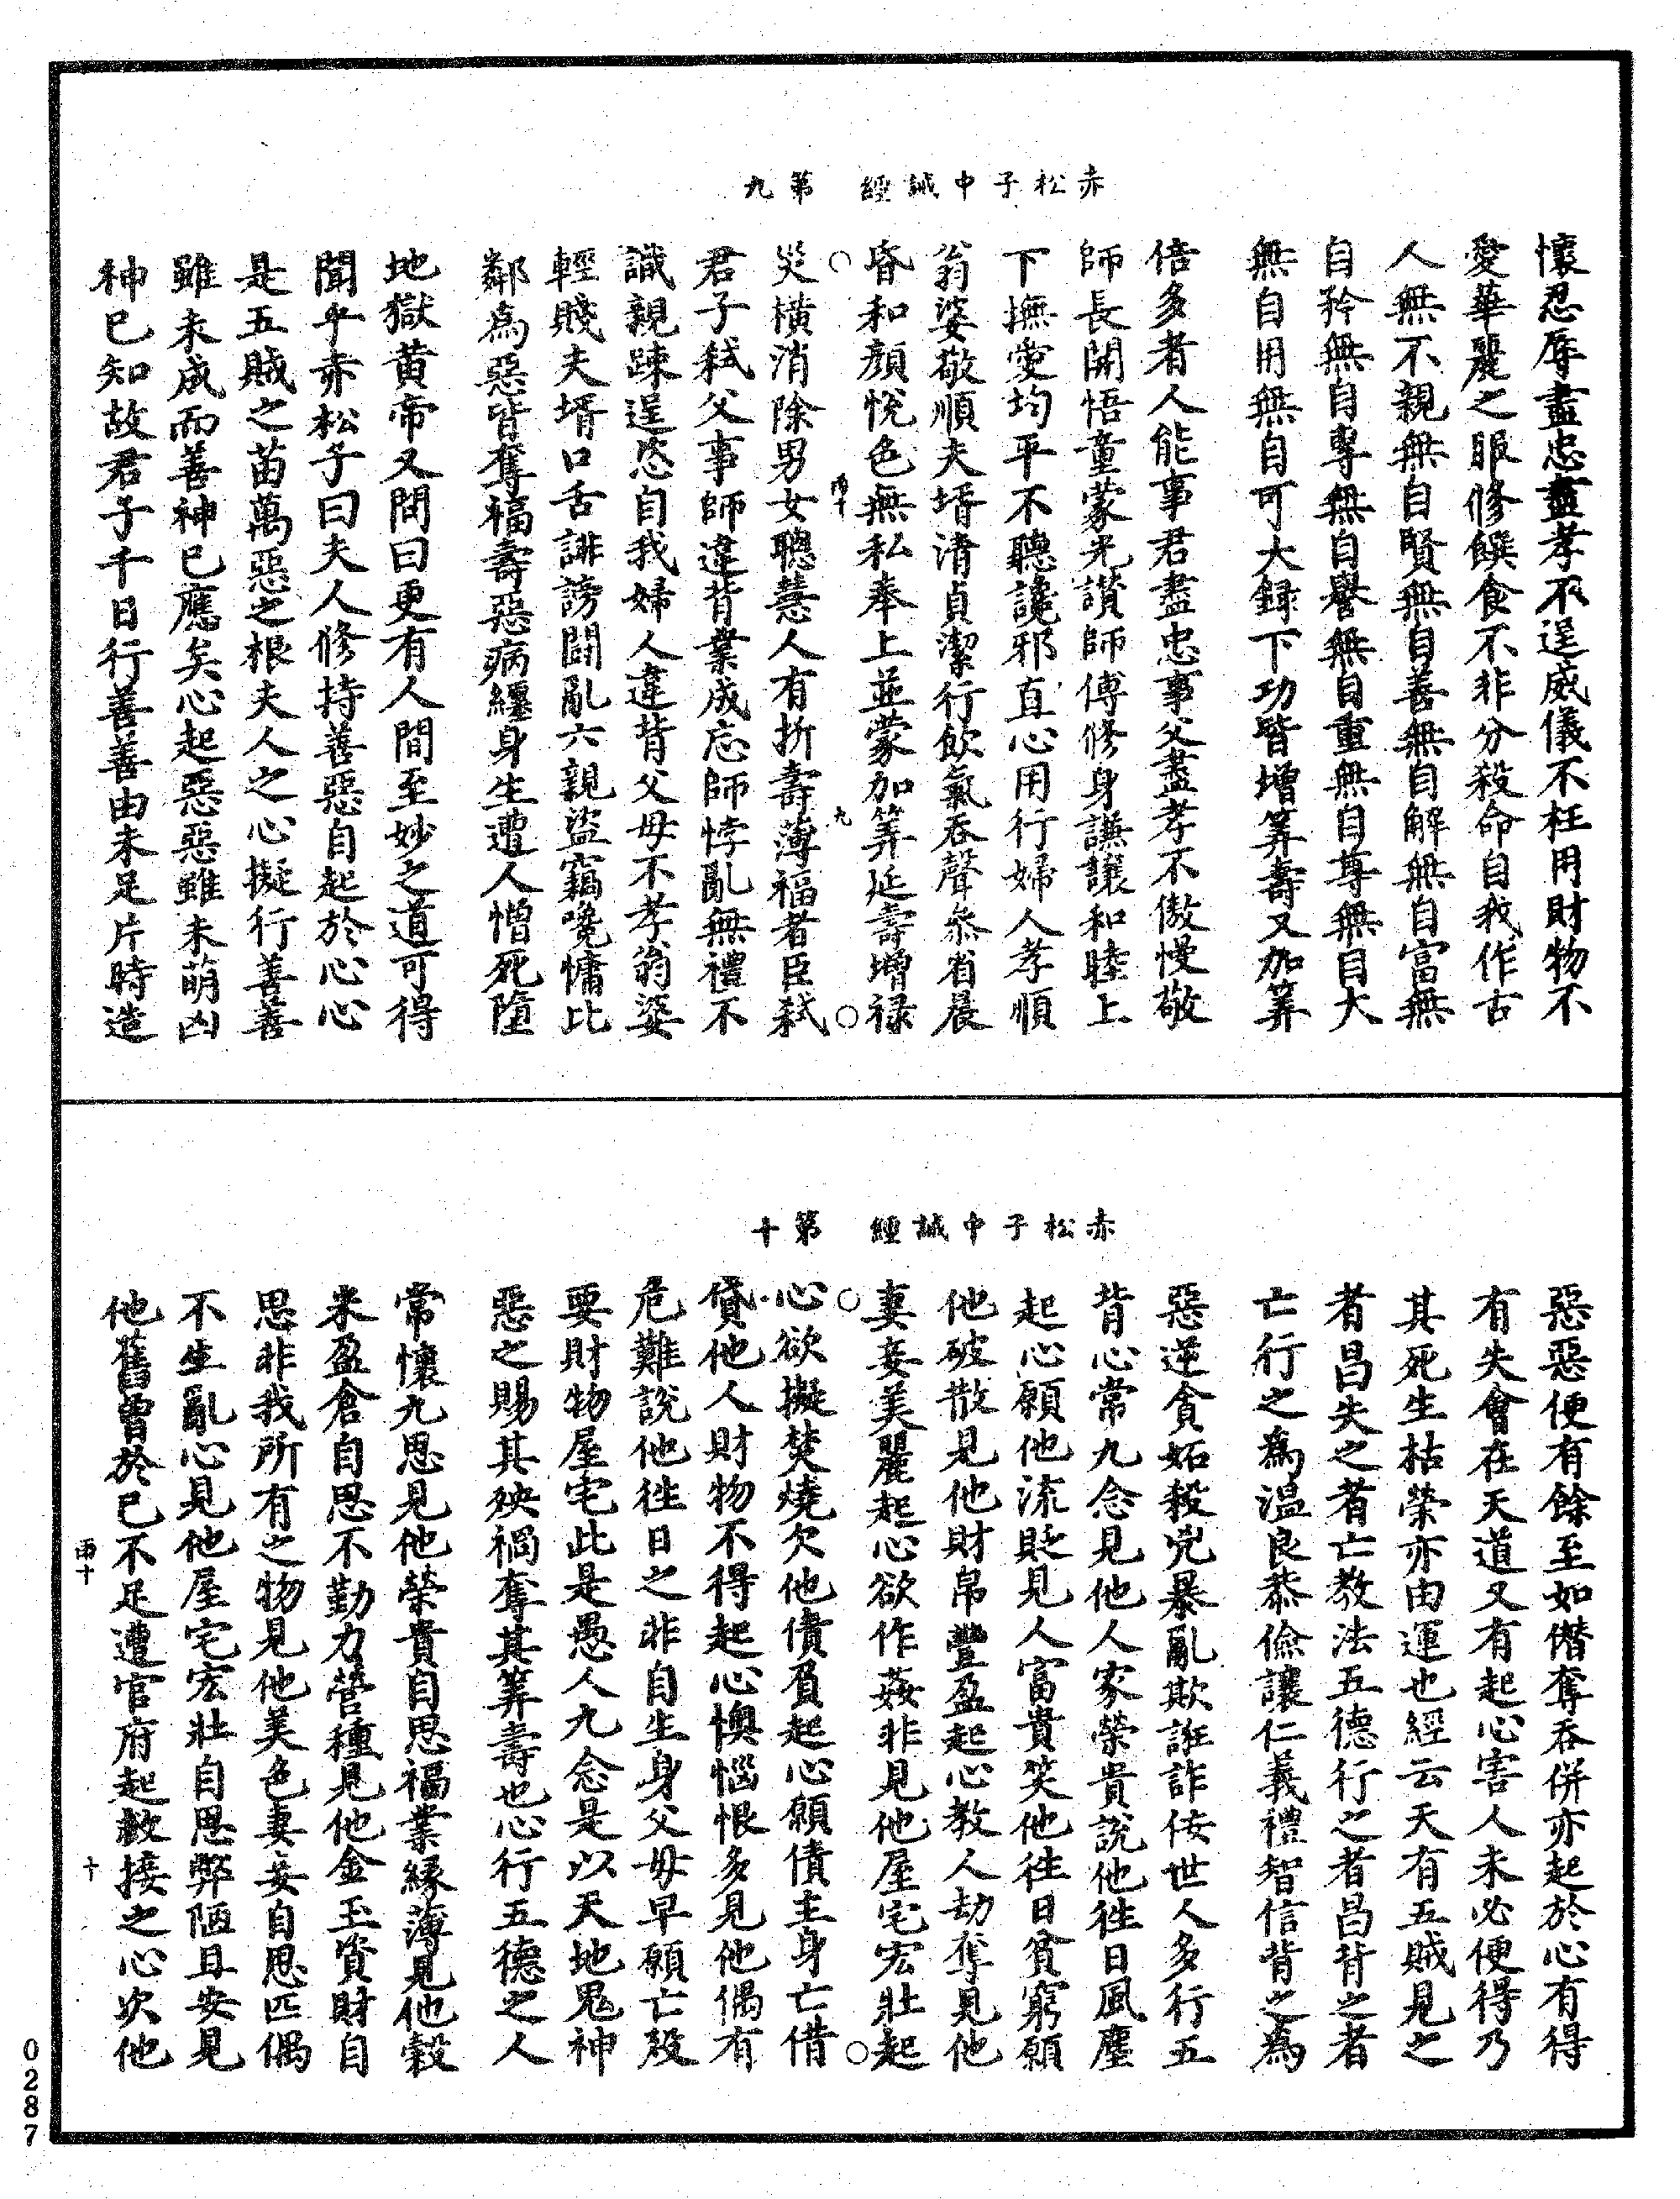 赤松子中誡經　第九
懷忍辱盡忠盡孝不逞威儀不枉用財物不
愛華麗之服修饌食不非分殺命自我作古
人無不親無自賢無自善無自解無自富無
自矜無自專無自譽無自重無自尊無自大
無自用無自可大錄下功皆增筭壽又加筭
倍多者人能事君盡忠事父盡孝不傲慢敬
師長開悟童蒙光讚師傅修身謙讓和睦上
下撫愛均平不聽讒邪直心用行婦人孝順
翁婆敬順夫壻清貞潔行飲氣吞聲叅省晨
昏和顏悅色無私奉上並蒙加筭延壽增祿
雨十　九
災橫消除男女聰慧人有折壽薄福者臣弒
君子弒父事師違背業成忘師悖亂無禮不
識親踈逞恣自我婦人違背父母不孝翁婆
輕賤夫壻口舌誹謗鬪亂六親盜竊嚵慵比
鄰為惡皆奪福壽惡病纏身生遭人憎死墮
地獄黃帝又問曰更有人間至妙之道可得
聞乎赤松子曰夫人修持善惡自起於心心
是五賊之苗萬惡之根夫人之心擬行善善
雖未成而善神已應矣心起惡惡雖未萌凶
神已知故君子千日行善善由未足片時造
赤松子中誡經　第十
惡惡便有餘至如僭奪吞併亦起於心有得
有失會在天道又有起心害人未必便得乃
其死生枯榮亦由運也經云天有五賊見之
者昌失之者亡教法五德行之者昌背之者
亡行之為溫良恭儉讓仁義禮智信背之為
惡逆貪妬殺兇暴亂欺誑詐侫世人多行五
背心常九念見他人家榮貴說他徃日風塵
起心願他流貶見人富貴笑他徃日貧窮願
他破散見他財帛豐盈起心教人劫奪見他
妻妾美麗起心欲作姦非見他屋宅宏壯起
心欲擬焚燒欠他債負起心願債主身亡借
貸他人財物不得起心懊惱恨多見他偶有
危難說他徃日之非自生身父母早願亡歿
要財物屋宅此是愚人九念是以天地鬼神
惡之賜其殃禍奪其筭壽也心行五德之人
常懷九思見他榮貴自思福業緣薄見他穀
米盈倉自思不勤力營種見他金玉資財自
思非我所有之物見他美色妻妾自思匹偶
不生亂心見他屋宅宏壯自思弊陋且安見
他舊曾於已不足遭官府起救接之心次他
雨十　十
0287